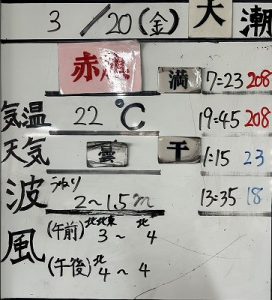 3/20(金) 大潮
赤旗 満 7:23 208
気温 22℃ 19:45 208
天気 曇 干 1:15 23
波 うねり 2~1.5m 13:35 18
風 (午前) 北北東 3 ~ 北 4
(午後) 北 4 ~ 4